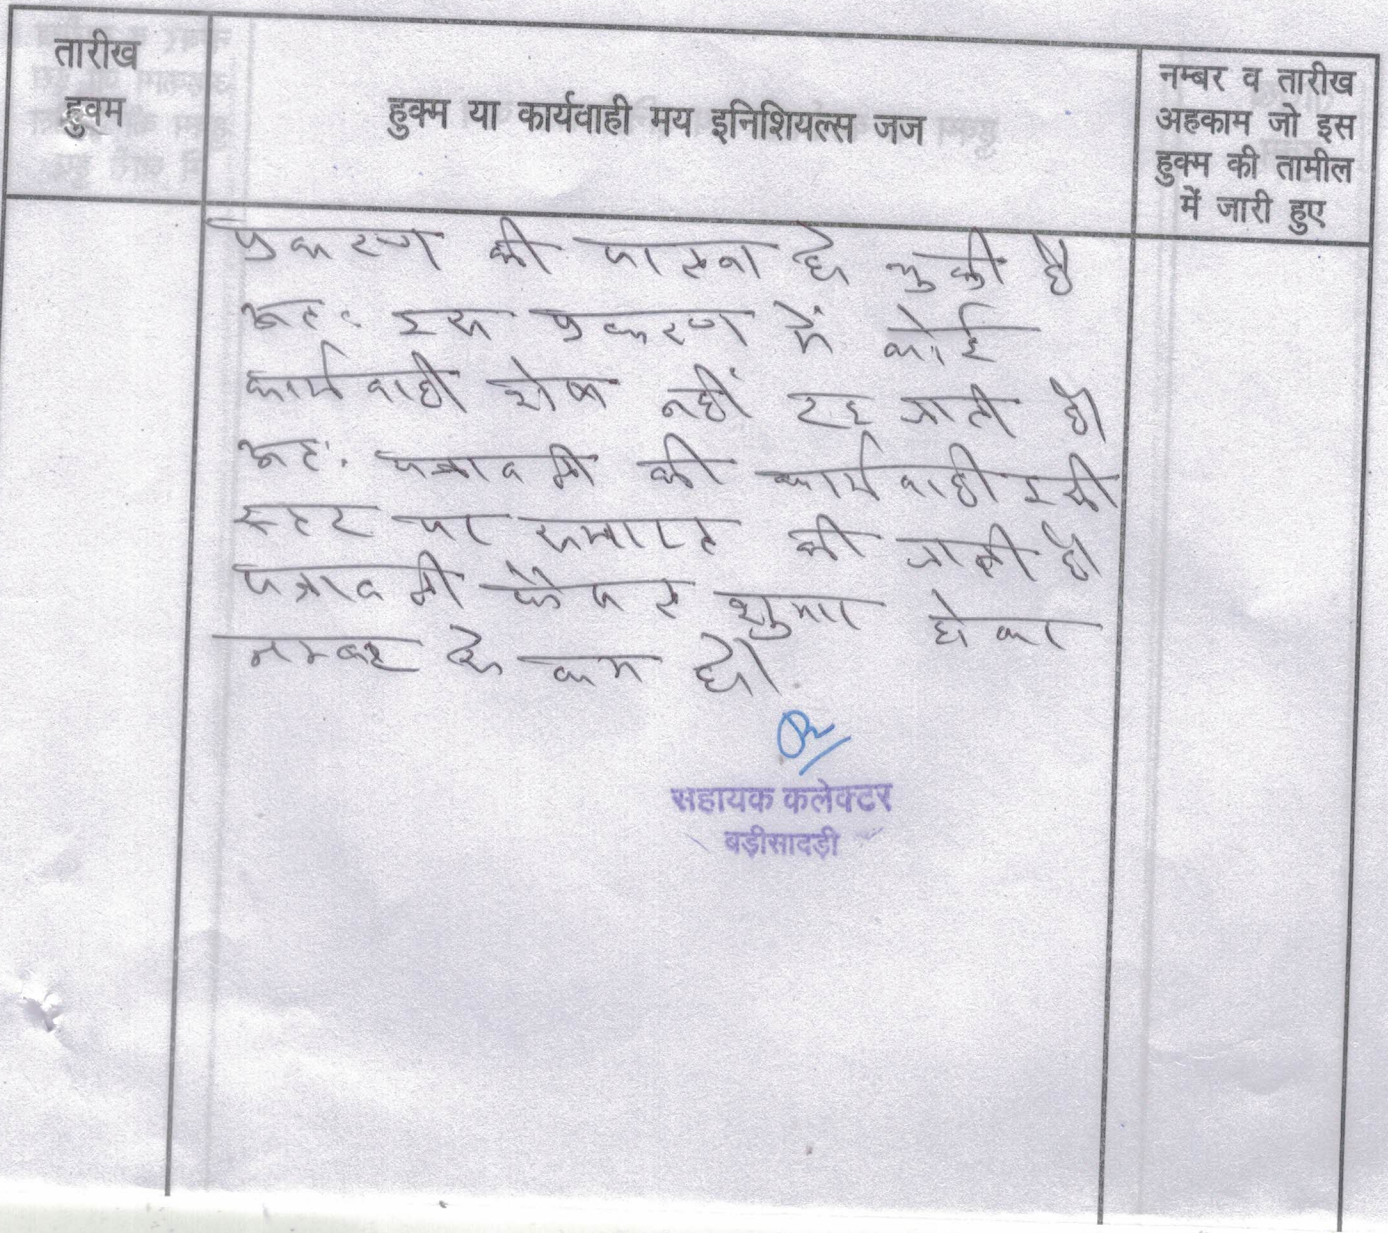 तारीख
हुक्म
हुक्म या कार्यवाही मय इनिशियल्स जज
नम्बर व तारीख
अहकाम जो इस
हुक्म की तामील
में जारी हुए
प्रकरण की पालना हो चुकी है
अतः इस प्रकरण में कोई
कार्यवाही शेष नहीं रह जाती है।
अतः पत्रावली की कार्यवाही इसी
स्तर पर समाप्त की जाती है।
पत्रावली फैसल शुमार होकर
नम्बर से कम हो।
सहायक कलेक्टर
बड़ीसादड़ी